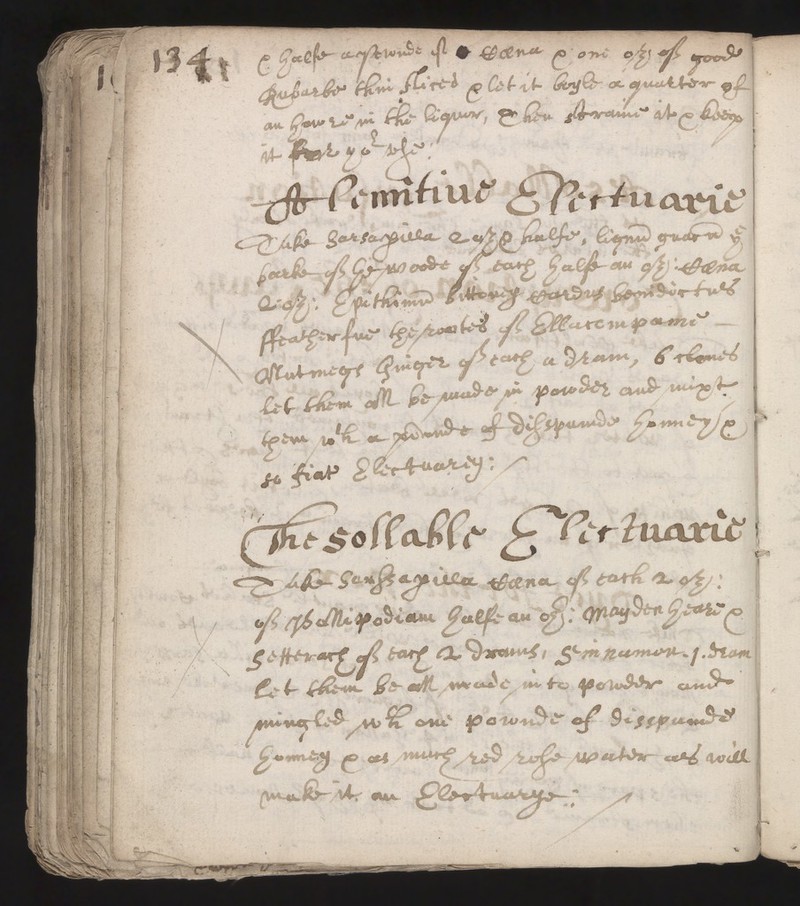 134
& halfe a pownde of Sæna & one oz: of good
Rubarbe thin sliced & let it boyle a quarter of
an howre in the liquor, then straine it & keep
it for yor use:
A lenitiue Electuarie
Take Sarsaparilla 2 oz & halfe, lignū guacū ye
barke of the woode of each halfe an oz: Sæna
2 oz: Epithimū bittoney Cardus benidictus
ffeatherfue the rootes of Ellacompanie
Nutmegs Ginger of each a dram, 6 cloues
let them all be made in powder and mixt
them wth a pownde of disspumde honney &
so fiat Electuarey:
The sollable Electuarie
Take Sarssaparilla Sæna of each 2 oz:
of Pollipodiam halfe an oz: Mayden heare &
Setterach of each 2 drams, Sinnamon .1. dram
let them be all made into powder and
mingled wth one pownde of disspumde
honney & as much red rose water as will
make it an Electuarye: